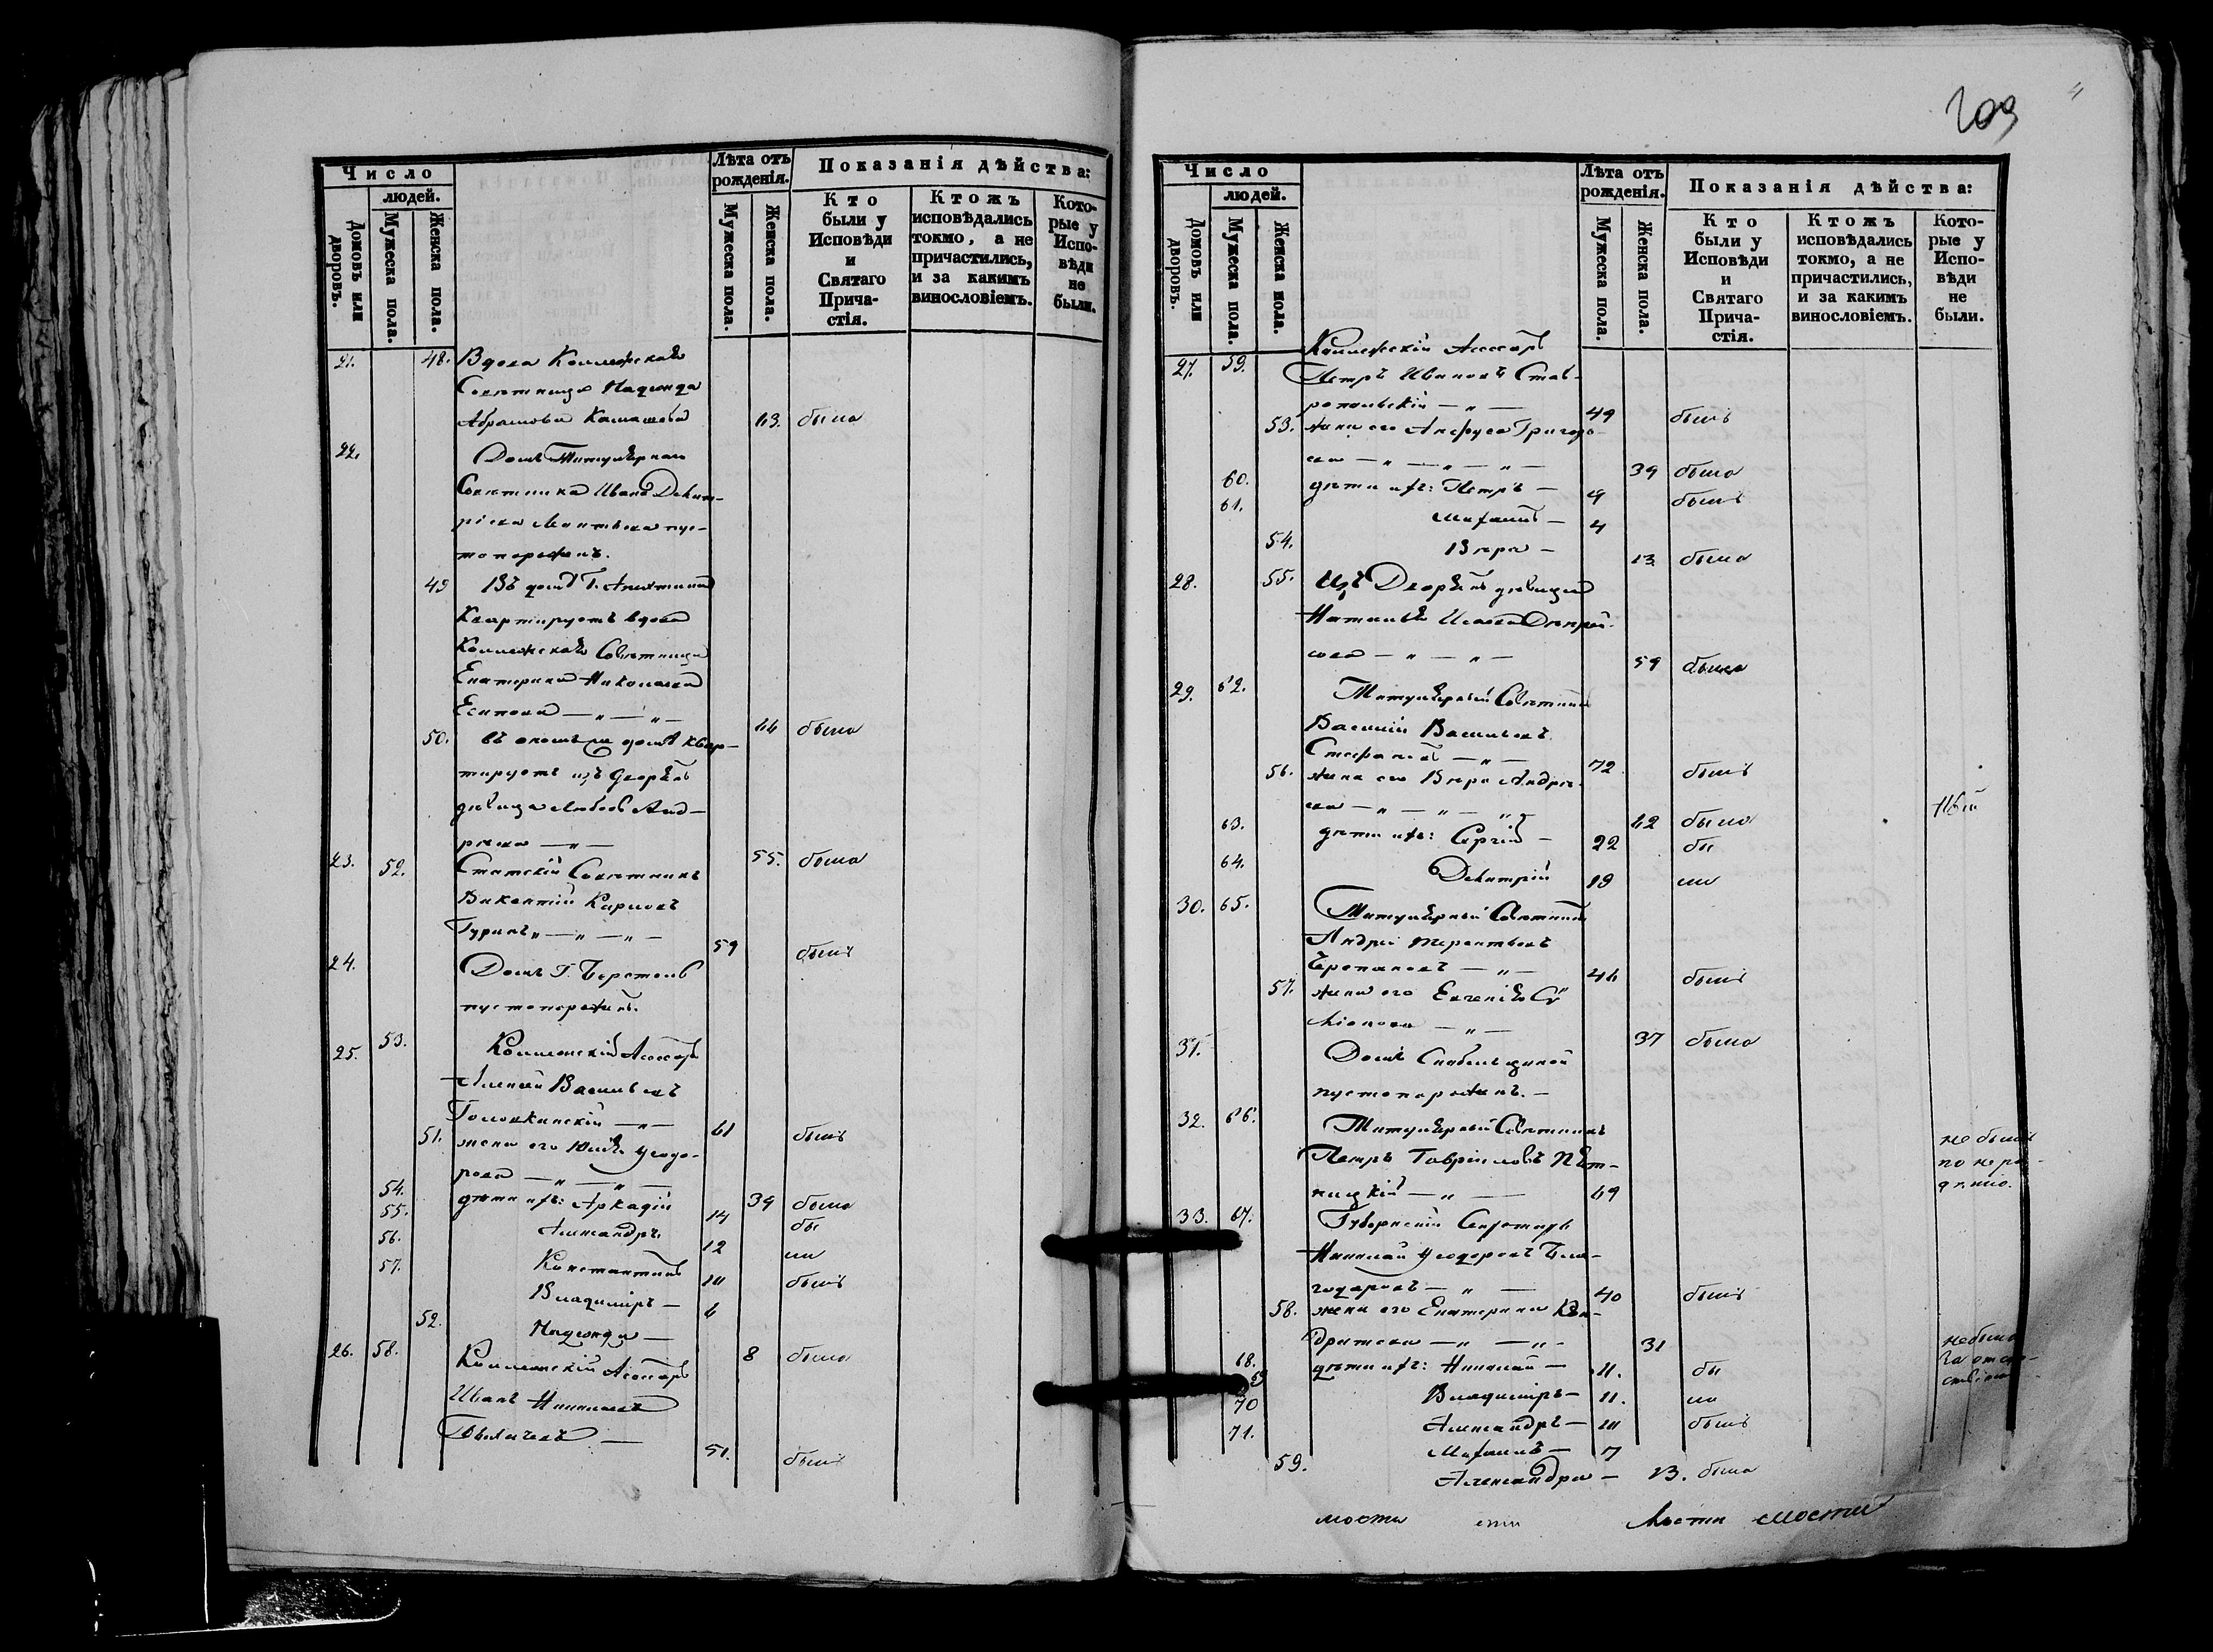 Число
людей.
Домовъ или дворовъ.
Мужеска пола.
Женска пола.
Лѣта отъ рожденія.
Мужеска пола.
Женска пола.
Показанія дѣйства:
Кто были у Исповѣди и Святаго Причастія.
Ктожъ исповѣдались токмо, а не причастились, и за какимъ винословіемъ.
Которые у Исповѣди не были.
21. 48. Вдова Коллежская
Совѣтница Надежда
Абрамова 63. была
22. Домъ Титулярнаго
Совѣтника Ивана Дмит-
ріева пус-
то порожнъ.
49 Въ домѣ Г.
Квартируетъ вдова
Коллежская Совѣтница
Екатерина Николаева
Есипова — „ — „ — 66 была
50. въ ономъ же домѣ квар-
тируетъ изъ Дворянъ
дѣвица Любовь Анд-
реева — „ — 55. была
23. 52. Статскій Совѣтникъ
Викентій Карловъ
„ — „ — „ — 59 былъ
24. Домъ Г.
пустопорожнъ.
25. 53. Коллежскій Ассесоръ
Алексѣй Васильевъ
Головкинскій — „ — 61 былъ
51. жена его Юлія Ѳеодо-
рова — „ — „ — 39 была
54. дѣти ихъ: Аркадій 14 бы
55. Александръ 12 ли
56. Константинъ 10 былъ
57. Владиміръ — 6
52. Надежда — 8 была
26. 58. Коллежскій Ассесоръ
Иванъ Николаевъ
— 51. былъ
209
4
Число
людей.
Домовъ или дворовъ.
Мужеска пола.
Женска пола.
Лѣта отъ рожденія.
Мужеска пола.
Женска пола.
Показанія дѣйства:
Кто были у Исповѣди и Святаго Причастія.
Ктожъ исповѣдались токмо, а не причастились, и за какимъ винословіемъ.
Которые у Исповѣди не были.
27. 59. Коллежскій Ассесоръ
Петръ Ивановъ Став-
ропольскій — „ — 49 былъ
53. жена его Анфуса Григорь-
ева — „ — „ — „ — 39 была
60. дѣти ихъ: Петръ — 9 былъ
61. Михаилъ — 4
54. Вѣра — 13 была
28. 55. Изъ Дворянъ дѣвица
Наталья
— „ — „ — 59 была
29. 62. Титулярный Совѣтникъ
Василій Васильевъ
Стефановъ — „ — 72 былъ
56. жена его Вѣра Андре-
ева — „ — „ — „ 62 была
63. дѣти ихъ: Сергій — 22 бы
64. Димитрій 19 ли
30. 65. Титулярный Совѣтникъ
Андрей Терентьевъ
— „ — 46 былъ
57. жена его Евгенія Си-
меонова — „ — 37 была
31. Домъ
пустопорожнъ. —
32. 66. Титулярный Совѣтникъ не былъ
Петръ Гавріиловъ по нера-
— „ — 69 дѣнію.
33. 67. Губернскій Секретарь
Николай Ѳеодоровъ Бла-
годаровъ — „ — 40 былъ
58. жена его Екатерина Кон-
дратьева — „ — „ — 31 не была
68. дѣти ихъ: Николай — 11. бы за отсут-
69 Владиміръ — 11. ли ствіемъ
70 Александръ — 10 былъ
71. Михаилъ — 7
59. Александра — 13. была